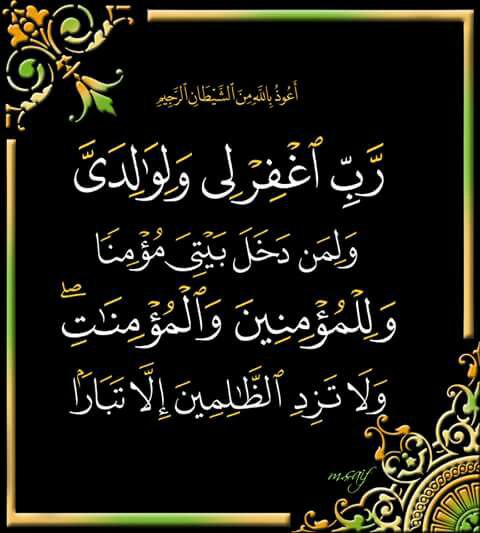 أَعُوذُ بِٱللَّهِ مِنَ ٱلشَّيْطَانِ ٱلرَّجِيمِ
رَّبِّ ٱغْفِرْ لِى وَلِوَٰلِدَىَّ
وَلِمَن دَخَلَ بَيْتِىَ مُؤْمِنًا
وَلِلْمُؤْمِنِينَ وَٱلْمُؤْمِنَٰتِۖ
وَلَا تَزِدِ ٱلظَّٰلِمِينَ إِلَّا تَبَارًۢا
m.saif